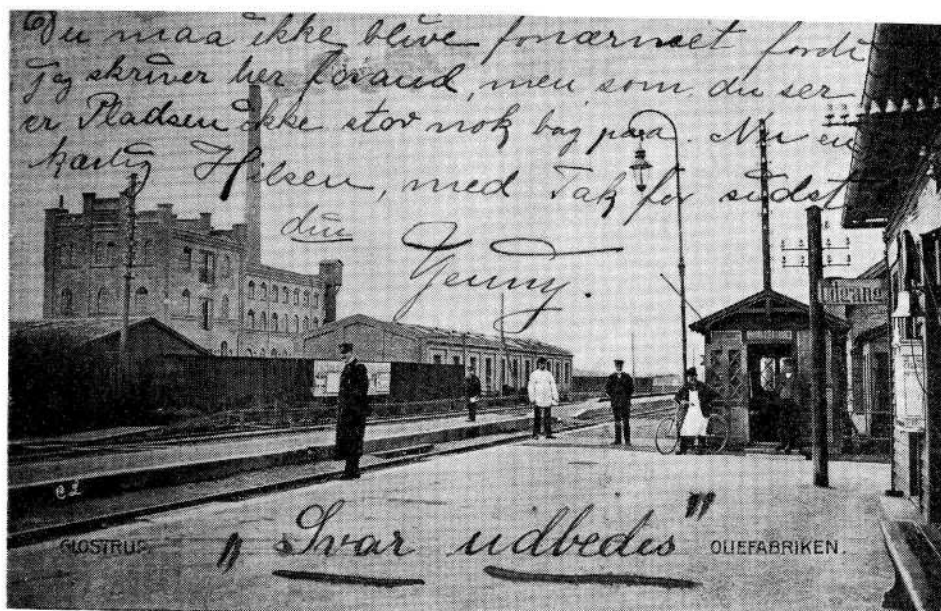 Du maa ikke blive fornærmet fordi
jeg skriver her foraud, men som du ser
er Pladsen ikke stor nok bag paa. Nu en
kærlig Hilsen, med Tak for sidst
din Jenny.
Udgang
C L
GLOSTRUP.
„Svar udbedes"
OLIEFABRIKEN.